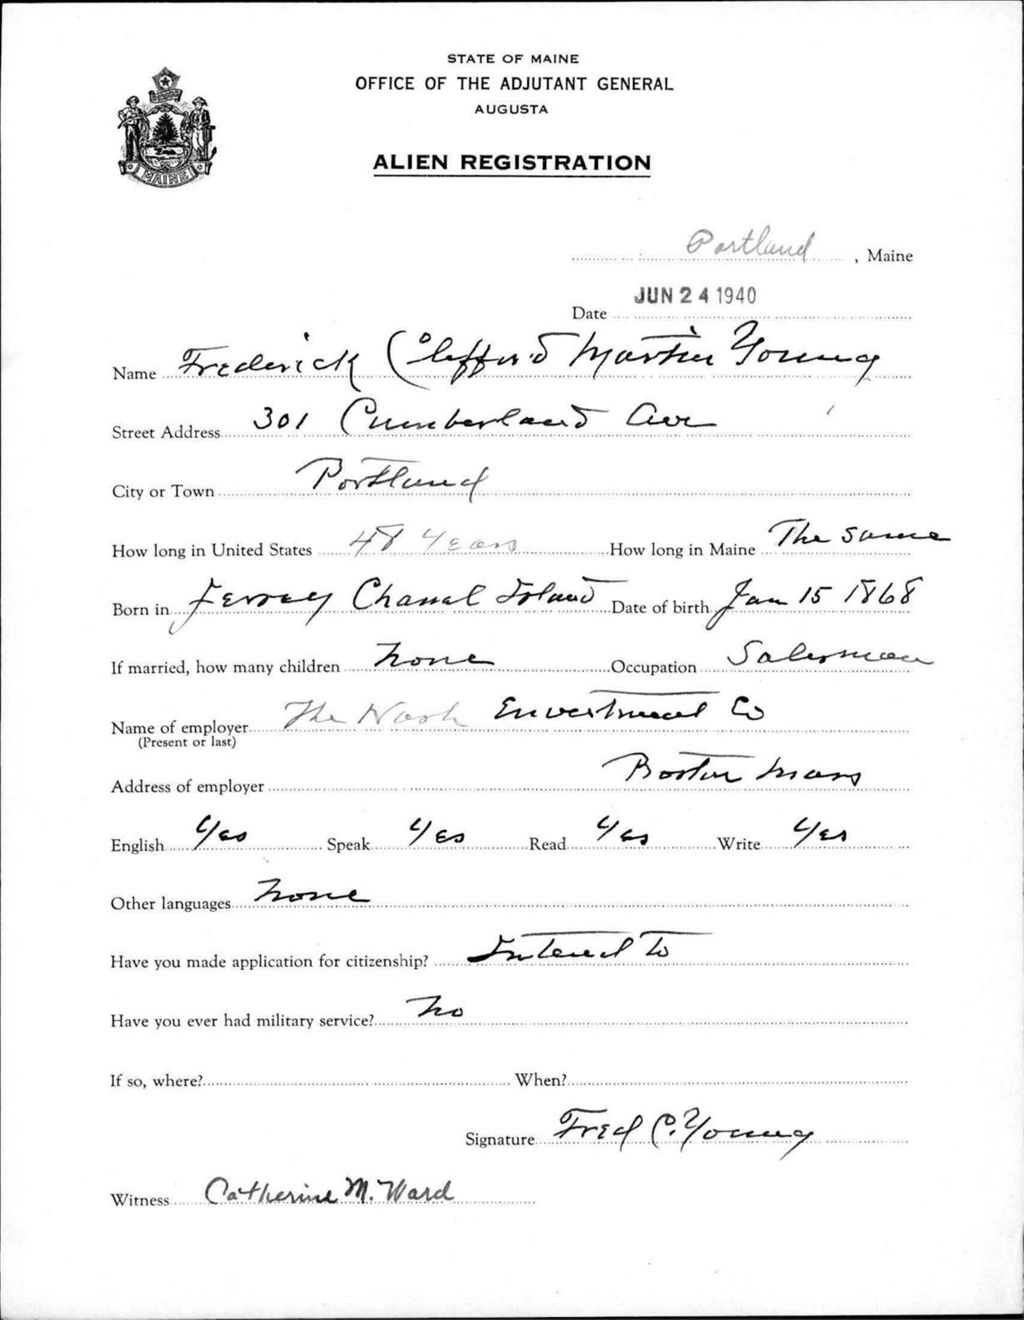 STATE OF MAINE
OFFICE OF THE ADJUTANT GENERAL
AUGUSTA
ALIEN REGISTRATION
MAINE
Portland, Maine
JUN 24 1940
Date
Name Frederick Clifford Martin Young
Street Address 301 Cumberland Ave
City or Town Portland
How long in United States 48 Years How long in Maine The Same
Born in Jersey Chanal Island Date of birth Jan 15 1868
If married, how many children None Occupation Salesman
Name of employer The Nash Envestment Co
(Present or last)
Address of employer Boston Mass
English Yes Speak Yes Read Yes Write Yes
Other languages None
Have you made application for citizenship? Intend to
Have you ever had military service? No
If so, where? When?
Signature Fred C. Young
Witness Catherine M. Ward